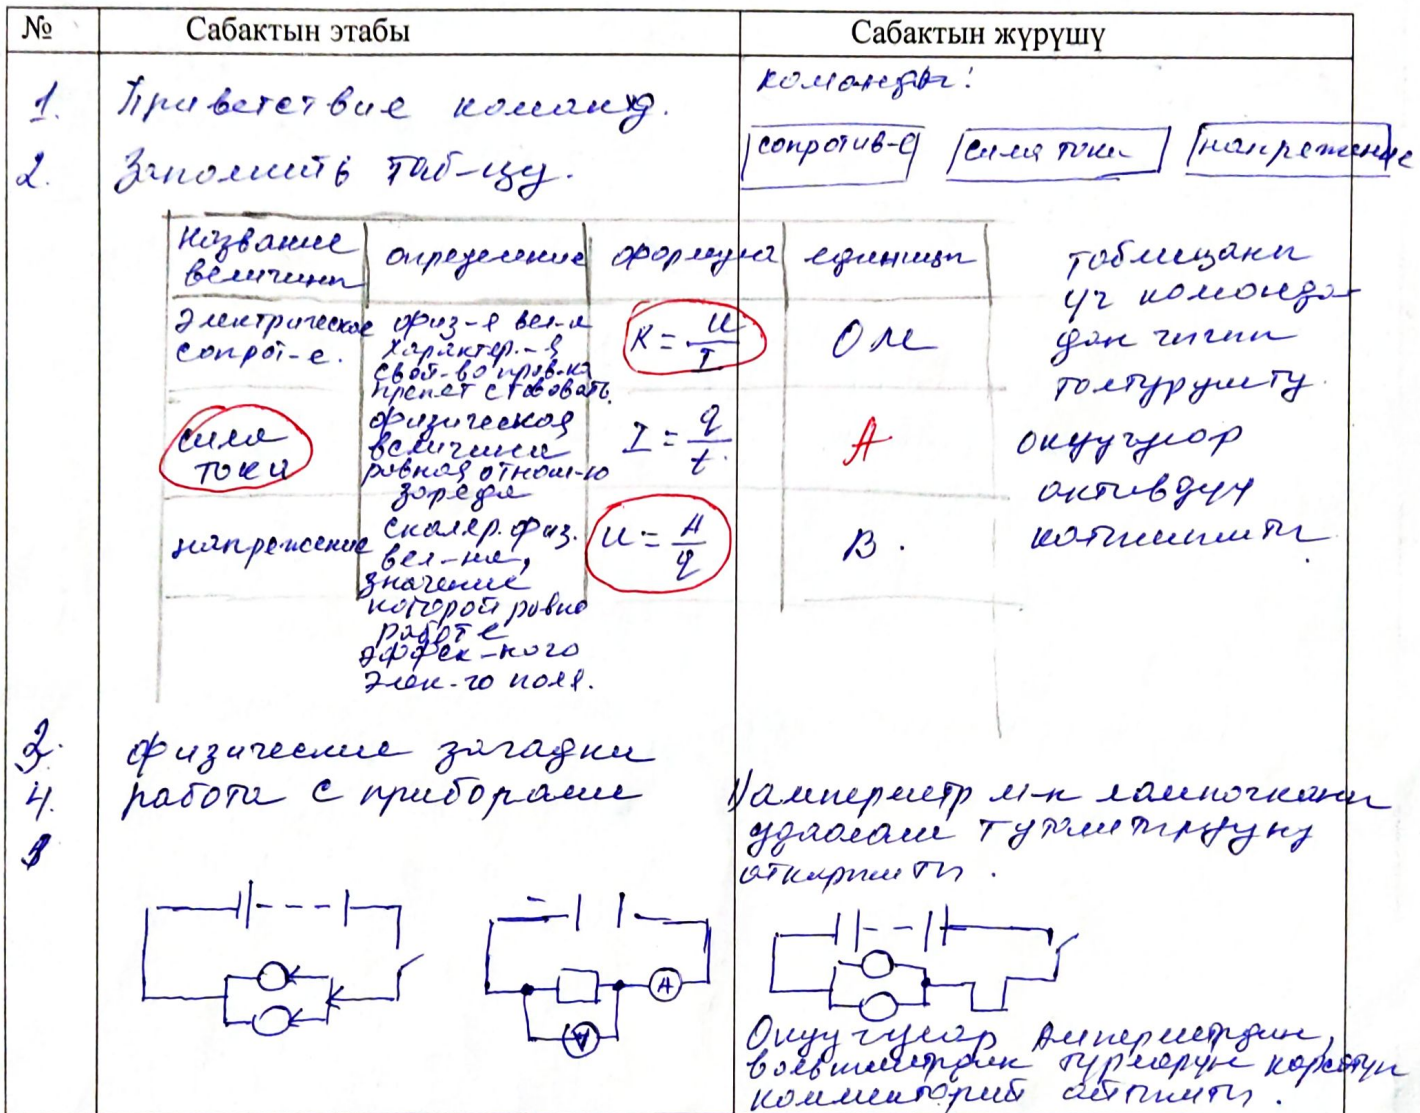 № Сабактын этабы Сабактын жүрүшү
1. Приветствие команд.
команды:
2. Заполнить таб-цу.
сопротив-е сила тока напряжение
название величины определение формула единицы
электрическое сопрот-е.
физ-я вел-а
характер.-я
свой-во пров-ка
препятствовать.
R = U/I
Ом
сила тока
физическая
величина
равная отнош-ю
заряда
I = q/t.
А
напряжение
скаляр. физ.
вел-на,
значение
которой равно
работе
эффек-ного
элек-го поля.
U = A/q
В.
таблицаны
үч команда
дан чыгып
толтурушту.
окуучулар
активдүү
катышышты
3. физические загадки
4. работа с приборами
1) амперметр м-н лампочканы
удаалаш туташтырууну
аткарышты.
A
V
Окуучулар Амперметрдин,
вольтметрдин түрлөрүн көрсөтүп
комментарий айтышты.